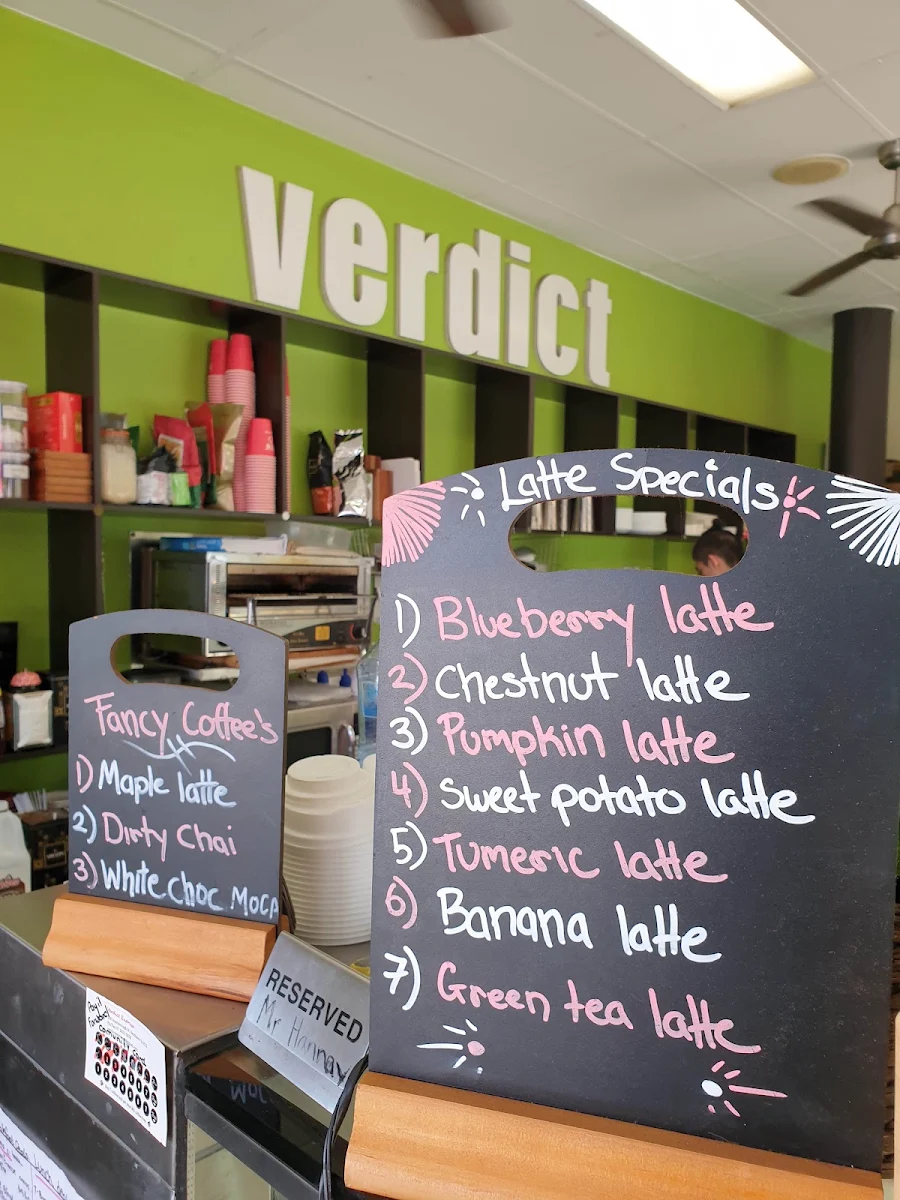 verdict
Latte Specials
1) Blueberry latte
2) Chestnut latte
3) Pumpkin latte
4) Sweet potato latte
5) Tumeric latte
6) Banana latte
7) Green tea latte
Fancy Coffee's
1) Maple latte
2) Dirty Chai
3) White choc Moca
RESERVED
Mr Hannay
Pay it
Forward